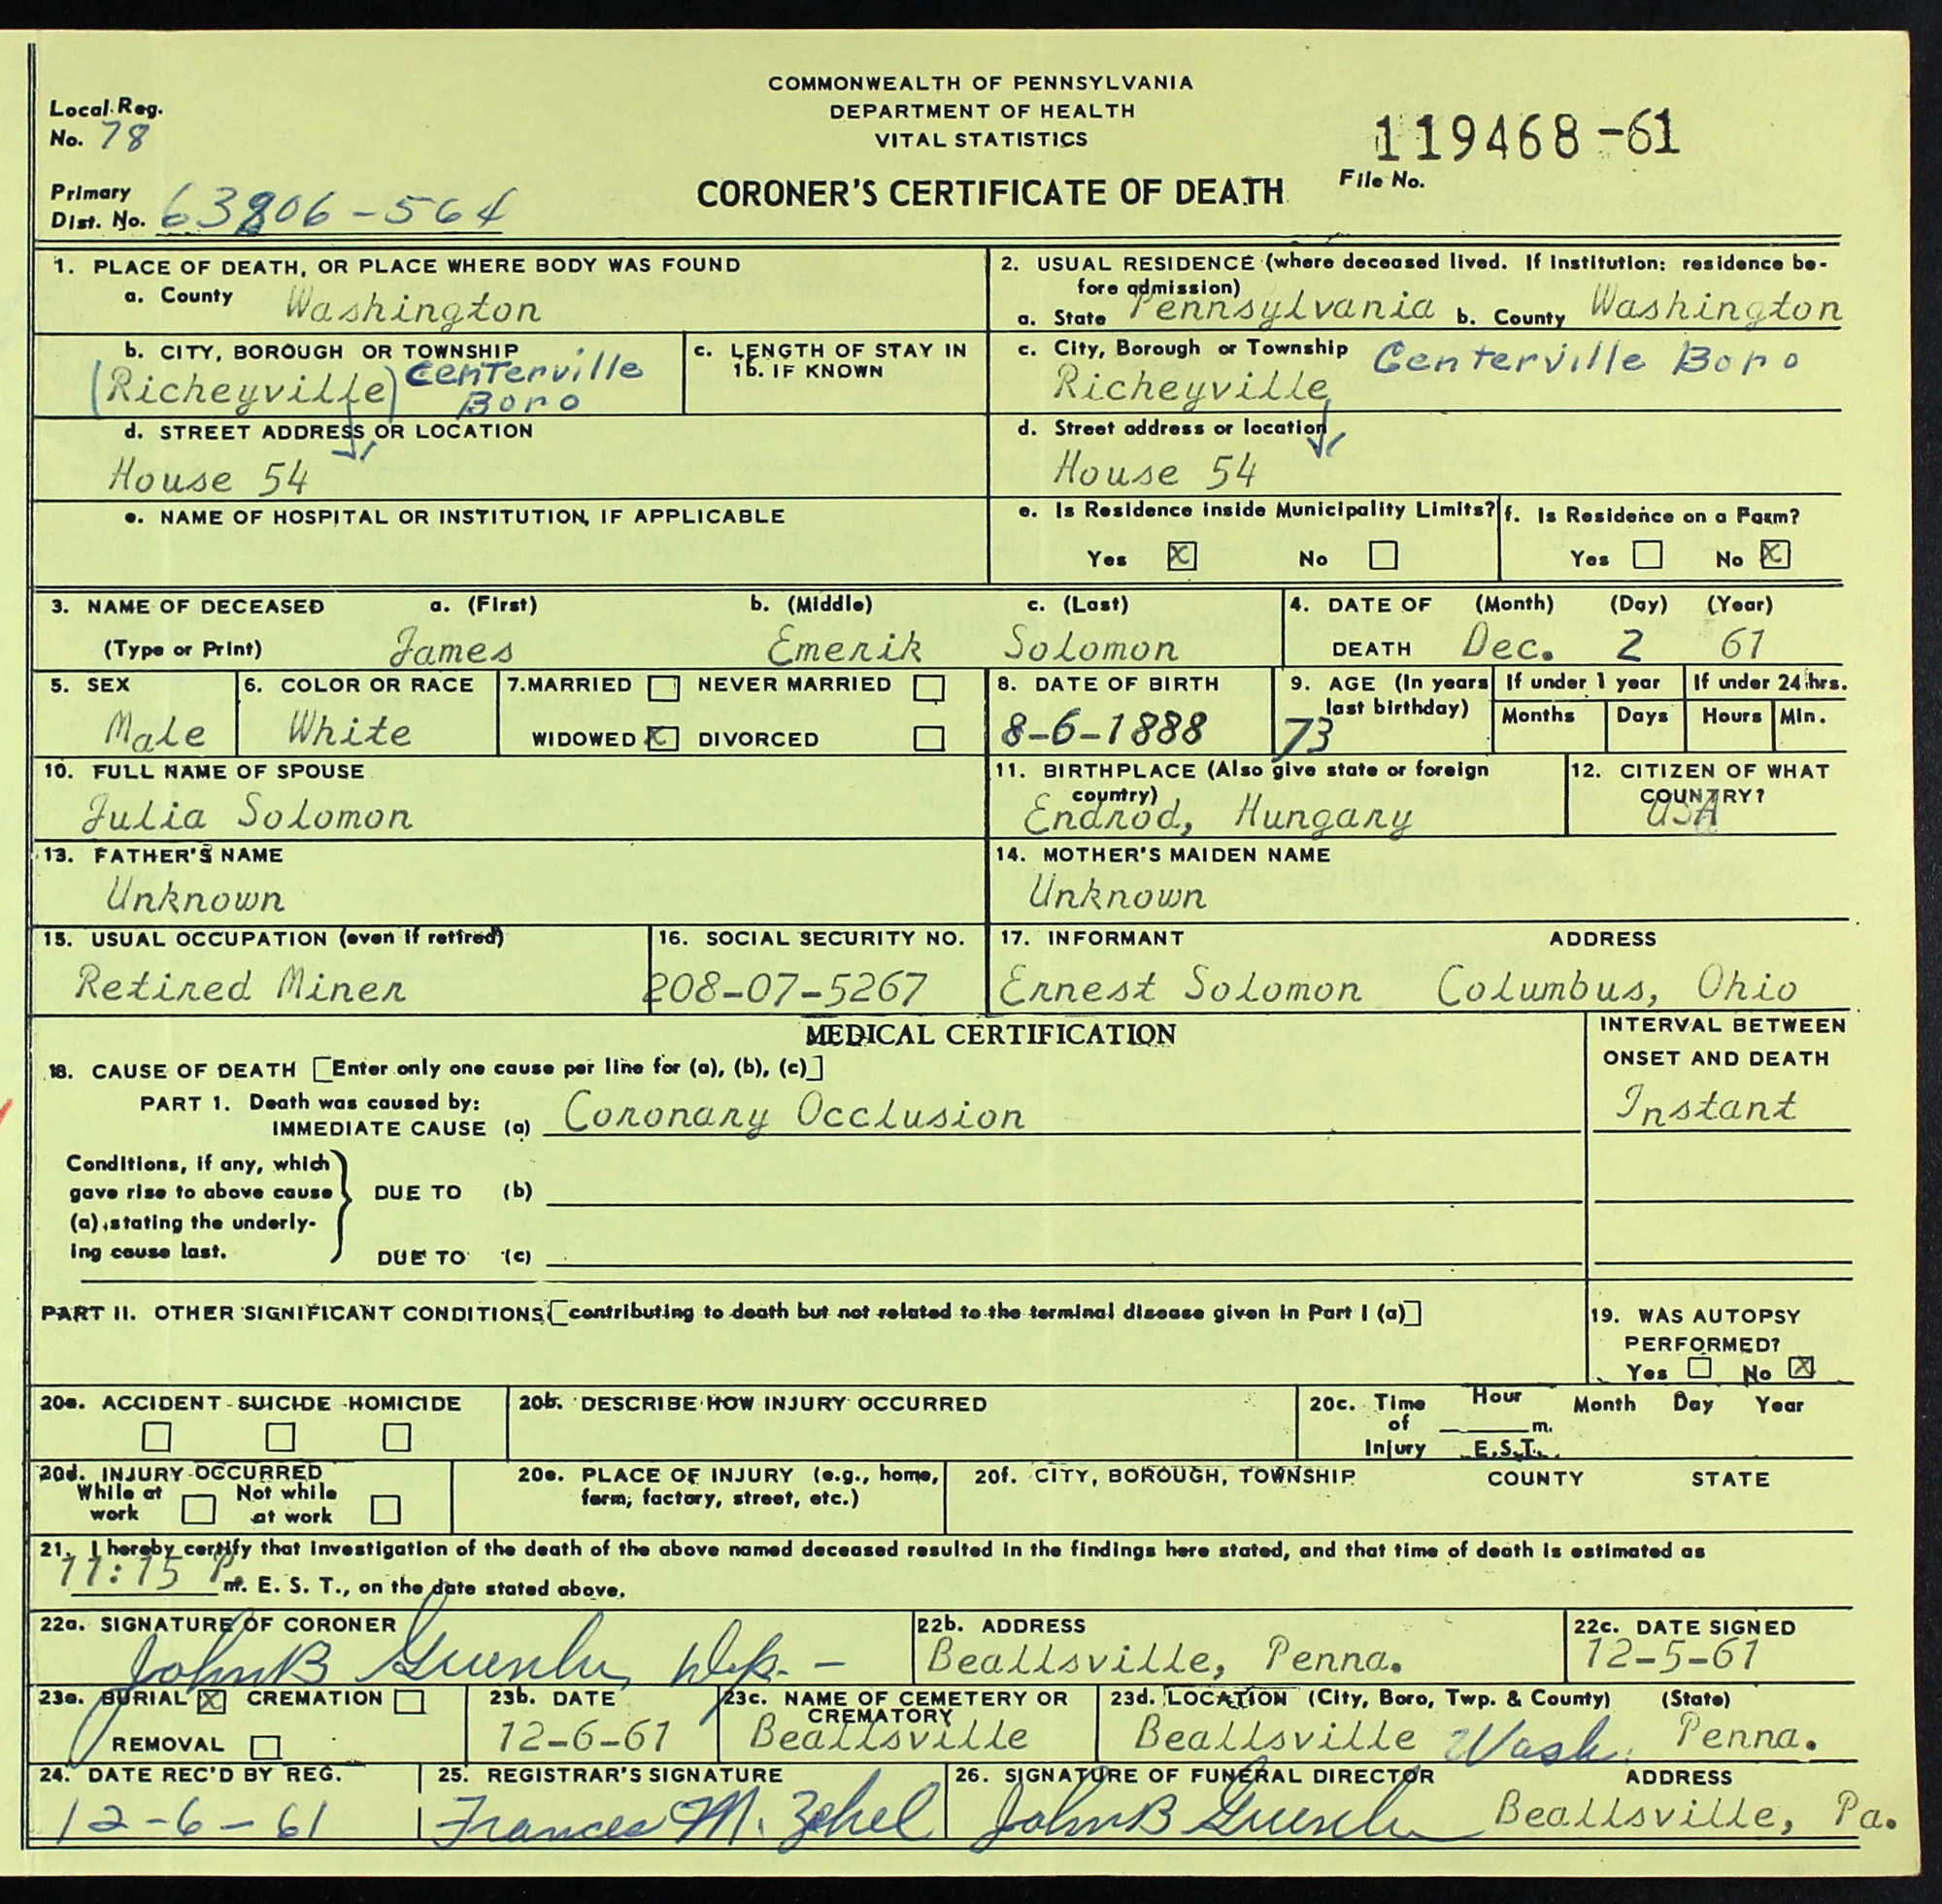 COMMONWEALTH OF PENNSYLVANIA
DEPARTMENT OF HEALTH
VITAL STATISTICS
CORONER'S CERTIFICATE OF DEATH
Local Reg. No. 78
Primary Dist. No. 63806-564
119468-61
File No.
1. PLACE OF DEATH, OR PLACE WHERE BODY WAS FOUND
a. County Washington
b. CITY, BOROUGH OR TOWNSHIP
(Richeyville) Centerville Boro
c. LENGTH OF STAY IN 1b. IF KNOWN
d. STREET ADDRESS OR LOCATION
House 54
e. NAME OF HOSPITAL OR INSTITUTION, IF APPLICABLE
2. USUAL RESIDENCE (where deceased lived. If institution: residence be-
fore admission)
a. State Pennsylvania b. County Washington
c. City, Borough or Township Centerville Boro
Richeyville
d. Street address or location
House 54
e. Is Residence inside Municipality Limits?
Yes X No
f. Is Residence on a Farm?
Yes No X
3. NAME OF DECEASED a. (First) b. (Middle) c. (Last)
(Type or Print) James Emerik Solomon
4. DATE OF (Month) (Day) (Year)
DEATH Dec. 2 61
5. SEX
Male
6. COLOR OR RACE
White
7. MARRIED NEVER MARRIED
WIDOWED X DIVORCED
8. DATE OF BIRTH
8-6-1888
9. AGE (In years last birthday)
73
If under 1 year
Months Days
If under 24 hrs.
Hours Min.
10. FULL NAME OF SPOUSE
Julia Solomon
11. BIRTHPLACE (Also give state or foreign country)
Endrod, Hungary
12. CITIZEN OF WHAT COUNTRY?
USA
13. FATHER'S NAME
Unknown
14. MOTHER'S MAIDEN NAME
Unknown
15. USUAL OCCUPATION (even if retired)
Retired Miner
16. SOCIAL SECURITY NO.
208-07-5267
17. INFORMANT ADDRESS
Ernest Solomon Columbus, Ohio
MEDICAL CERTIFICATION
18. CAUSE OF DEATH [Enter only one cause per line for (a), (b), (c)]
PART 1. Death was caused by:
IMMEDIATE CAUSE (a) Coronary Occlusion
INTERVAL BETWEEN
ONSET AND DEATH
Instant
Conditions, if any, which
gave rise to above cause
(a), stating the underly-
ing cause last.
DUE TO (b)
DUE TO (c)
PART II. OTHER SIGNIFICANT CONDITIONS [contributing to death but not related to the terminal disease given in Part I (a)]
19. WAS AUTOPSY
PERFORMED?
Yes No X
20a. ACCIDENT SUICIDE HOMICIDE
20b. DESCRIBE HOW INJURY OCCURRED
20c. Time of Injury Hour m. E.S.T. Month Day Year
20d. INJURY OCCURRED
While at work Not while at work
20e. PLACE OF INJURY (e.g., home,
farm, factory, street, etc.)
20f. CITY, BOROUGH, TOWNSHIP COUNTY STATE
21. I hereby certify that investigation of the death of the above named deceased resulted in the findings here stated, and that time of death is estimated as
11:15 P m. E. S. T., on the date stated above.
22a. SIGNATURE OF CORONER
John B Dep.
22b. ADDRESS
Beallsville, Penna.
22c. DATE SIGNED
12-5-61
23a. BURIAL X CREMATION
REMOVAL
23b. DATE
12-6-61
23c. NAME OF CEMETERY OR
CREMATORY
Beallsville
23d. LOCATION (City, Boro, Twp. & County) (State)
Beallsville Wash. Penna.
24. DATE REC'D BY REG.
12-6-61
25. REGISTRAR'S SIGNATURE
Frances M. Zehel
26. SIGNATURE OF FUNERAL DIRECTOR ADDRESS
John B Beallsville, Pa.